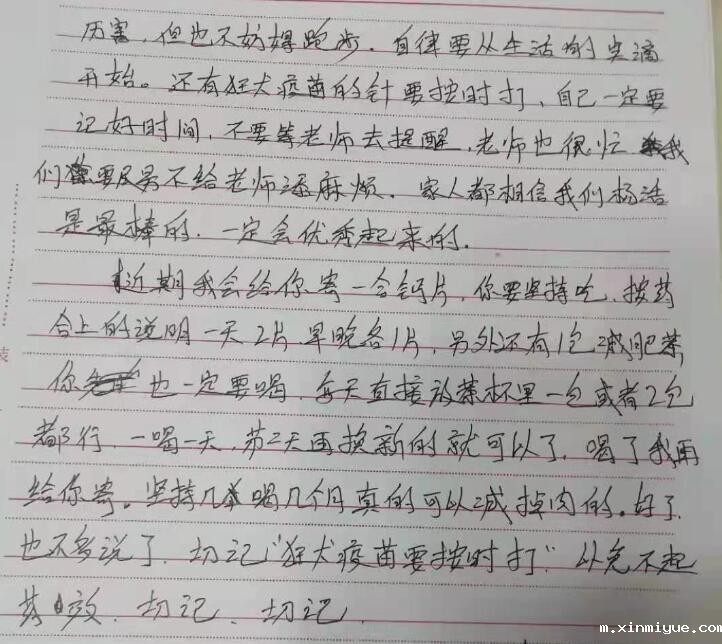 历害，但也不妨碍跑步．自律要从生活的点滴
开始。还有狂犬疫苗的针要按时打、自己一定要
记好时间，不要等老师去提醒，老师也很忙我
们要尽另不给老师添麻烦．家人都相信我们杨浩
是最棒的．一定会优秀起来的．
近期我会给你寄一合钙片，你要坚持吃．按药
合上的说明一天2片早晚各1片，另外还有1包减肥茶
你也一定要喝．每天直接放茶杯里一包或者2包
都行．一喝一天，第二天再换新的就可以了．喝了我再
给你寄。坚持喝几个月真的可以减掉肉的。好了．
也不多说了．切记"狂犬疫苗要按时打"以免不起
效．切记、切记．
m.xinmiyue.com